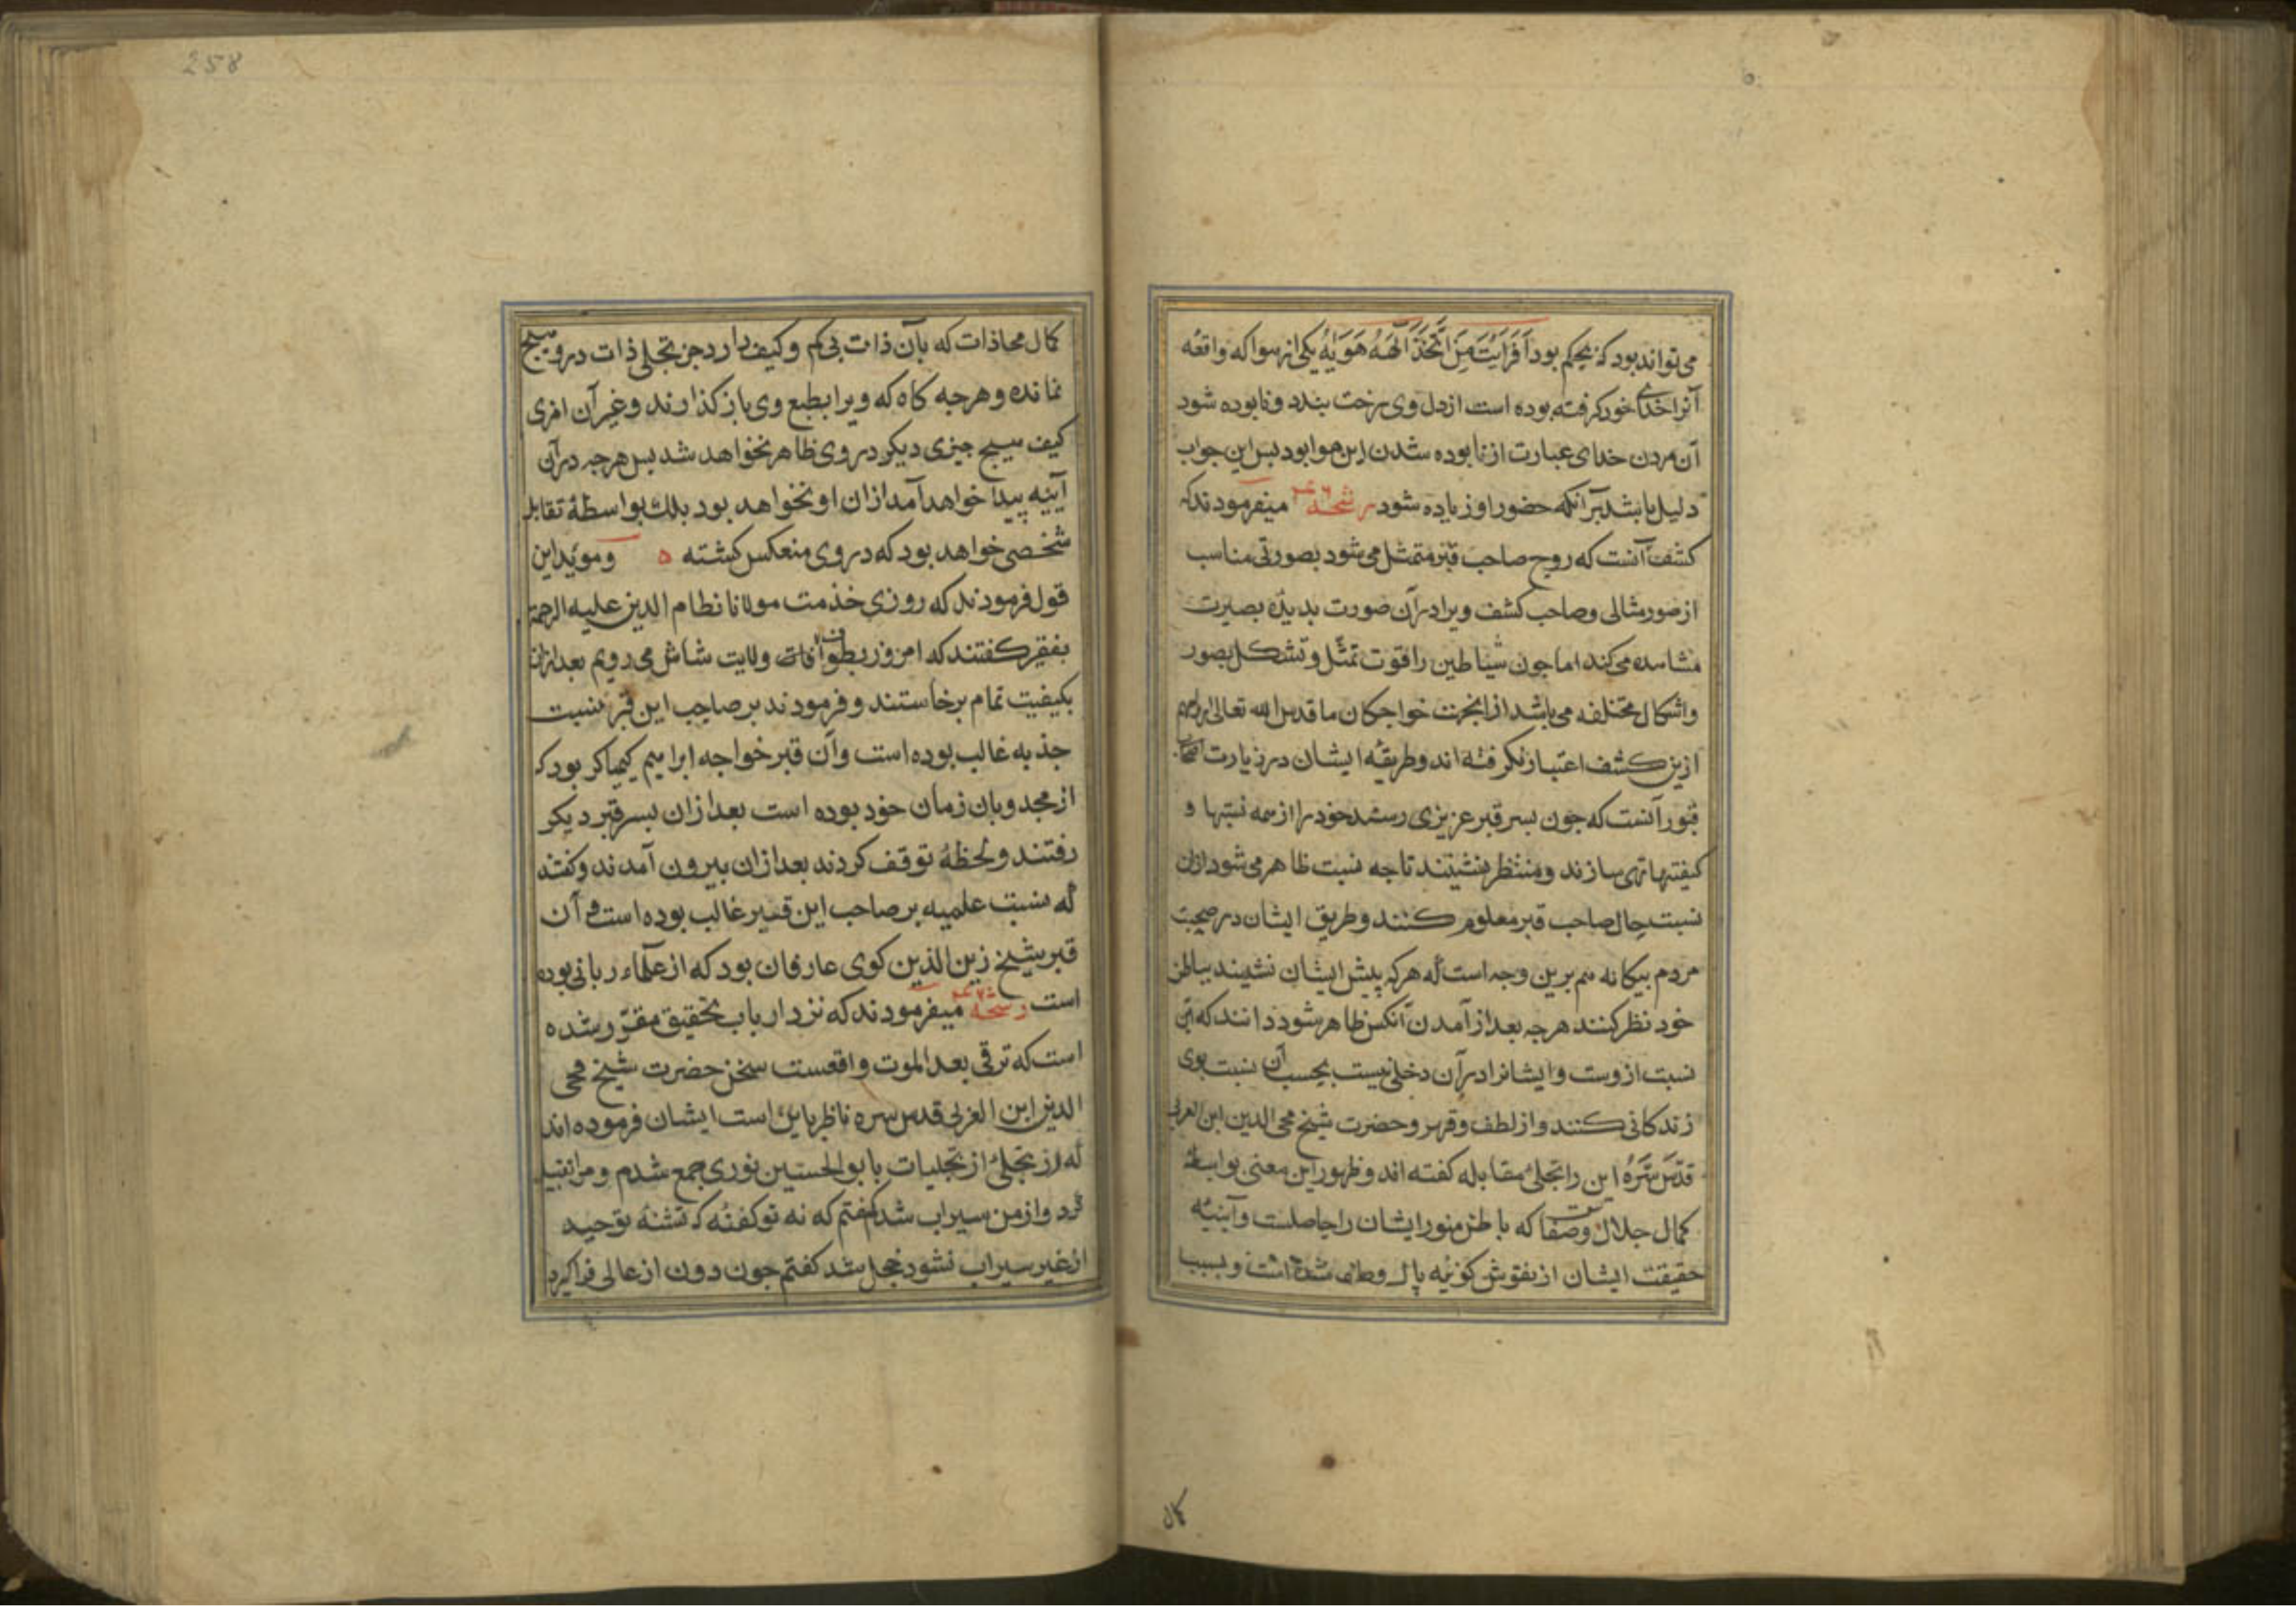 می تواند بود که بحکم بود اَفَرَاَیْتَ مَنِ اتَّخَذَ اِلٰهَهُ هَوَیٰهُ یکی از هوا که واقعه
آنرا خدای خود کرفته بوده است از دل وی رخت بندد و نابوده شود
آن مردن خدای عبارت از نابوده شدن این هوا بود بس این جواب
دلیل باشد بر آنکه حضور او زیاده شود رشحه میفرمودند که
کشف آنست که روح صاحب قبر متمثل می شود بصورتی مناسب
از صور مثالی و صاحب کشف ویرا در آن صورت بدیدهٔ بصیرت
مشاهده می کند اما جون شیاطین را قوت تمثّل و تشکل بصور
و اشکال مختلفه می باشد از انجهت خواجکان ما قدس الله تعالی ارواحهم
ازین کشف اعتبار نکرفته اند و طریقهٔ ایشان در زیارت اصحاب
قبور آنست که جون بسر قبر عزیزی رسند خود را از همه نسبتها و
کیفیتها تهی سازند و منتظر نشینند تا جه نسبت ظاهر می شود از ان
نسبت حال صاحب قبر معلوم کنند و طریق ایشان در صحبت
مردم بیکانه هم برین وجه است که هرکه پیش ایشان نشیند بباطن
خود نظر کنند هرجه بعد از آمدن آنکس ظاهر شود دانند که این
نسبت ازوست و ایشانرا در آن دخلی نیست بحسب آن نسبت بوی
زندکانی کنند و از لطف و قهر و حضرت شیخ محی الدین ابن العربی
قدّس سرّه این را تجلی مقابله کفته اند و ظهور این معنی بواسطهٔ
کمال جلال و صفا که باطن منور ایشان را حاصلست و آیینهٔ
حقیقت ایشان از نقوش کونیه پاک و صافی شده است و بسبب
کال
258
کمال محاذات که بآن ذات بی کم و کیف دارد جز تجلی ذات درو هیج
نمانده و هرجه کاه که ویرا بطبع وی باز کذارند و غیر آن امری
کیف هیج جیزی دیکر در وی ظاهر نخواهد شد بس هرجه در آن
آیینه پیدا خواهد آمد از ان او نخواهد بود بلکه بواسطهٔ تقابل
شخصی خواهد بود که در وی منعکس کشته ه و موید این
قول فرمودند که روزی خدمت مولانا نظام الدین علیه الرحمة
بفقیر کفتند که امروز بطوف ولایت شاش می رویم بعد از ان
بکیفیت تمام برخاستند و فرمودند بر صاحب این قبر نسبت
جذبه غالب بوده است و آن قبر خواجه ابراهیم کیمیاکر بود که
از مجذوبان زمان خود بوده است بعد از ان بسر قبر دیکر
رفتند و لحظهٔ توقف کردند بعد از ان بیرون آمدند و کفتند
که نسبت علمیه بر صاحب این قبر غالب بوده است و آن
قبر شیخ زین الدین کوی عارفان بود که از علماء ربانی بوده
است رشحه میفرمودند که نزد ارباب تحقیق مقرّر شده
است که ترقی بعد الموت واقعست سخن حضرت شیخ محی
الدین ابن العربی قدس سره ناظر باین است ایشان فرموده اند
که در تجلیٔ از تجلیات با بو الحسین نوری جمع شدم و مرا تقبیل
کرد و از من سیراب شد کفتم که نه تو کفتهٔ که تشنهٔ توحید
از غیر سیراب نشود خجل شد کفتم جون دون از عالی فراکیرد